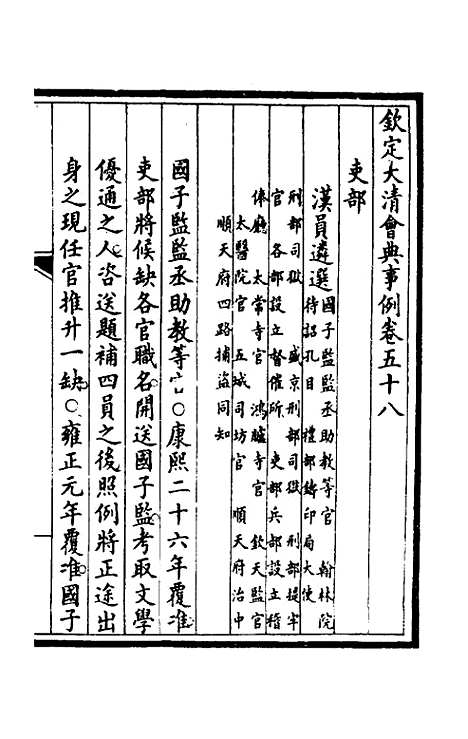 欽定大清會典事例卷五十八
吏部
漢員遴選國子監監丞助教等官 翰林院
待詔孔目 禮部鑄印局大使
刑部司獄 盛京刑部司獄 刑部提牢
官 各部設立督催所 吏部兵部設立稽
俸廳 太常寺官 鴻臚寺官 欽天監官
太醫院官 五城司坊官 順天府治中
順天府四路捕盜同知
國子監監丞助教等官○康熙二十六年覆准
吏部將候缺各官職名開送國子監考取文學
優通之人咨送題補四員之後照例將正途出
身之現任官推升一缺○雍正元年覆准國子